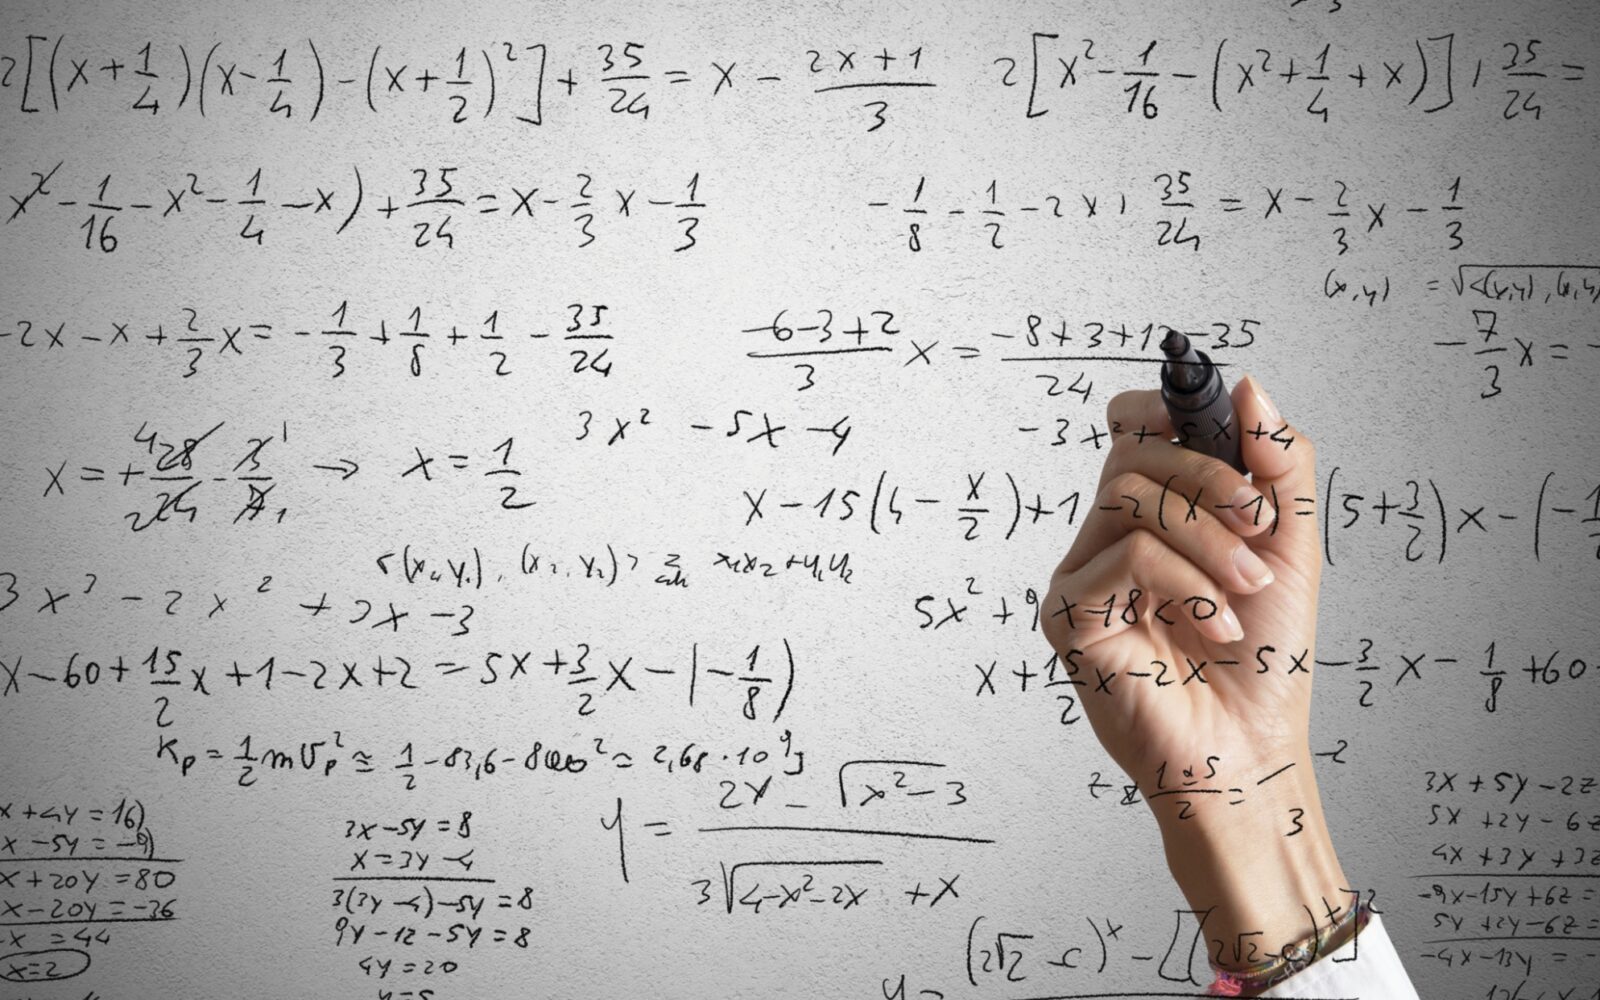 2[(x+1/4)(x-1/4)-(x+1/2)²]+35/24=x-(2x+1)/3
2[x²-1/16-(x²+1/4+x)] 35/24=
x²-1/16-x²-1/4-x)+35/24=x-2/3x-1/3
-1/8-1/2-2x 35/24=x-2/3x-1/3
(x,y) =√<(x,y),(x,y)
-2x-x+2/3x=-1/3+1/8+1/2-35/24
(-6-3+2)/3 x=(-8+3+12-35)/24
-7/3x=-
x=+28/24-3/7→x=1/2
3x²-5x-4
-3x²+5x+4
x-15(4-x/2)+1-2(x-1)=(5+3/2)x-(-1
<(x₁y₁),(x₂,y₂)> = x₁x₂+y₁y₂
3x³-2x²+3x-3
5x²+9x-18<0
x-60+15/2x+1-2x+2=5x+3/2x-|-1/8)
x+15/2x-2x-5x-3/2x-1/8+60
Kp=1/2mVp²≅1/2-83,6-8000²=2,68·10⁹J
(1±5)/2=
-2
3
y=(2x-√x²-3)/(3√4-x²-2x+x)
x+4y=16)
x-5y=-9)
x+20y=80
x-20y=-36
-x=44
x=2
3x-5y=8
x=3y-4
3(3y-4)-5y=8
9y-12-5y=8
4y=20
y=5
3x+5y-2z
5x+2y-6z
4x+3y+3z
-9x-15y+6z=
5x+2y-6z=
-4x-13y=-
(2√2-c)ˣ-[[(2√2-c)ˣ]²
y=